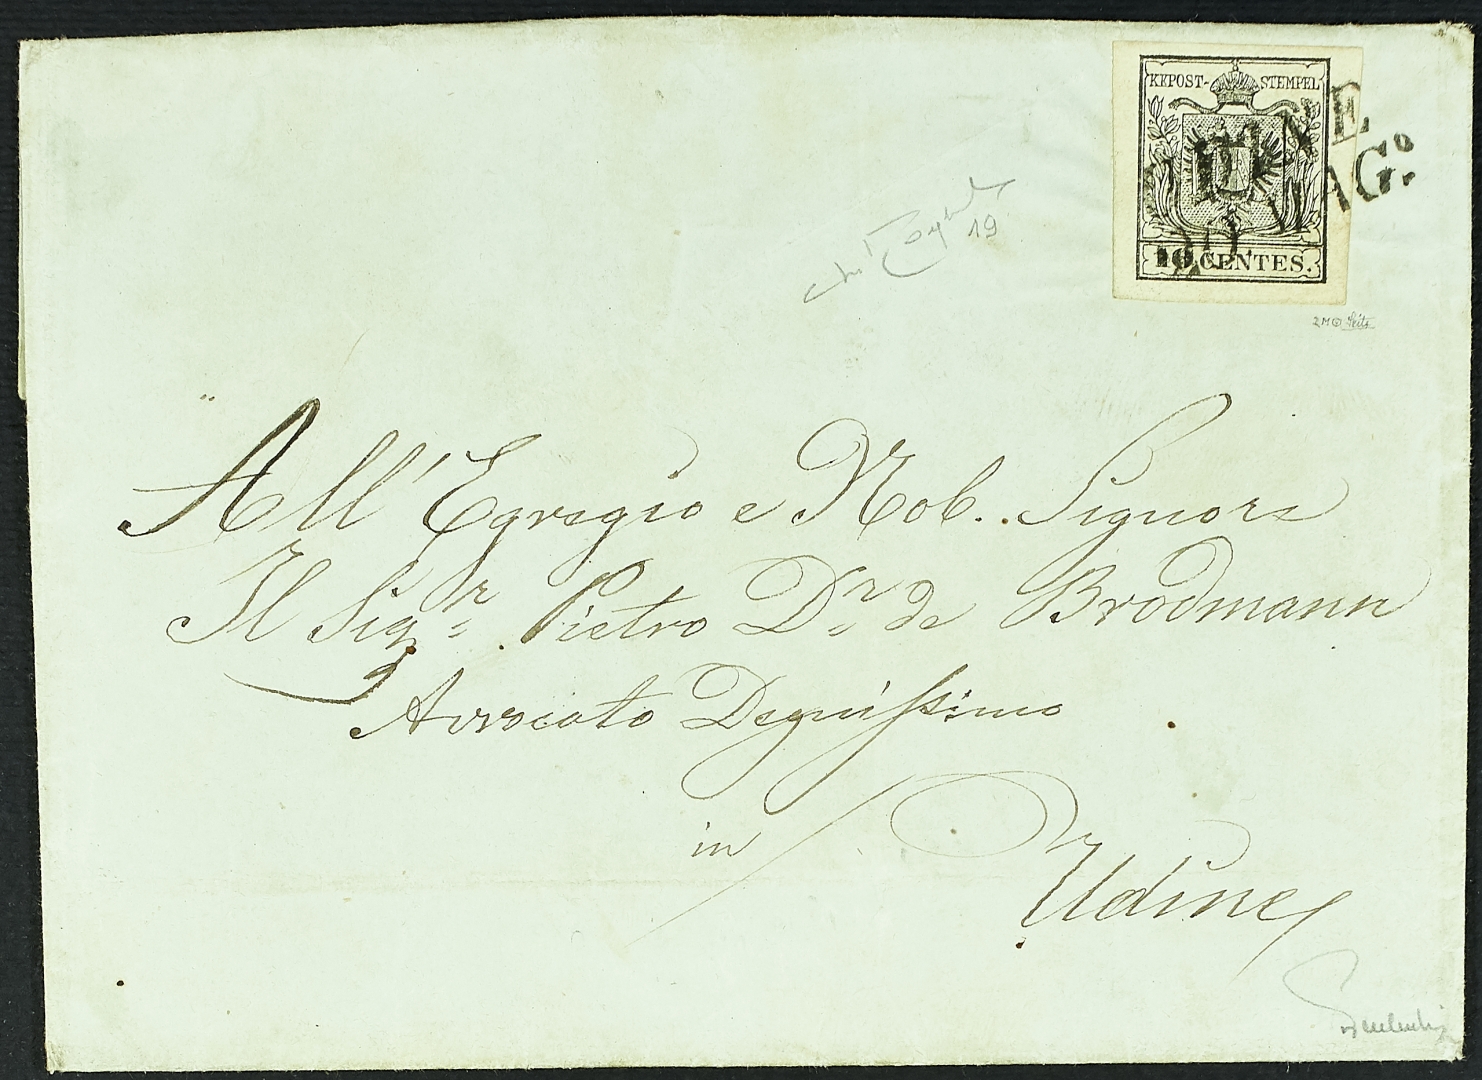 KKPOST-STEMPEL
10 CENTES.
UDINE
MAG.º
19
All'Egregio e Nob. Signore
Il Sigr. Pietro Dr. de Brodmann
Avvocato Degnissimo
in
Udine